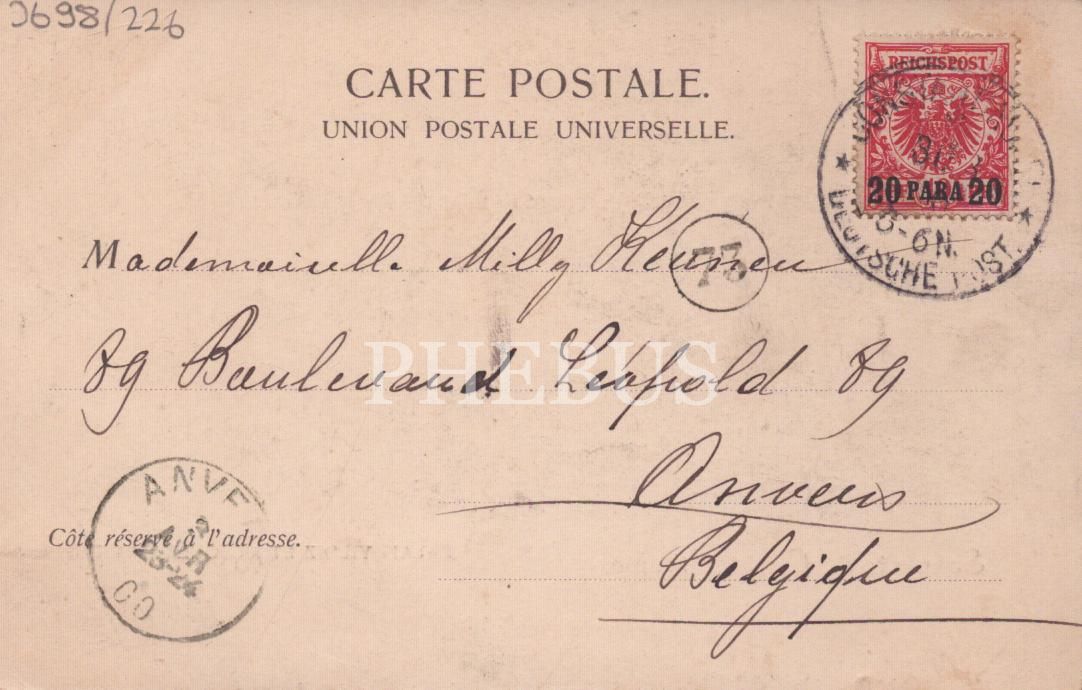 3698/226
CARTE POSTALE.
UNION POSTALE UNIVERSELLE.
REICHSPOST
20 PARA 20
5-6N.
DEUTSCHE POST.
Mademoiselle Milly
73
89 Boulevard Léopold 89
PHEBUS
Anvers
Belgique
ANVE
2
AVR
23-24
00
Côte réservé à l'adresse.